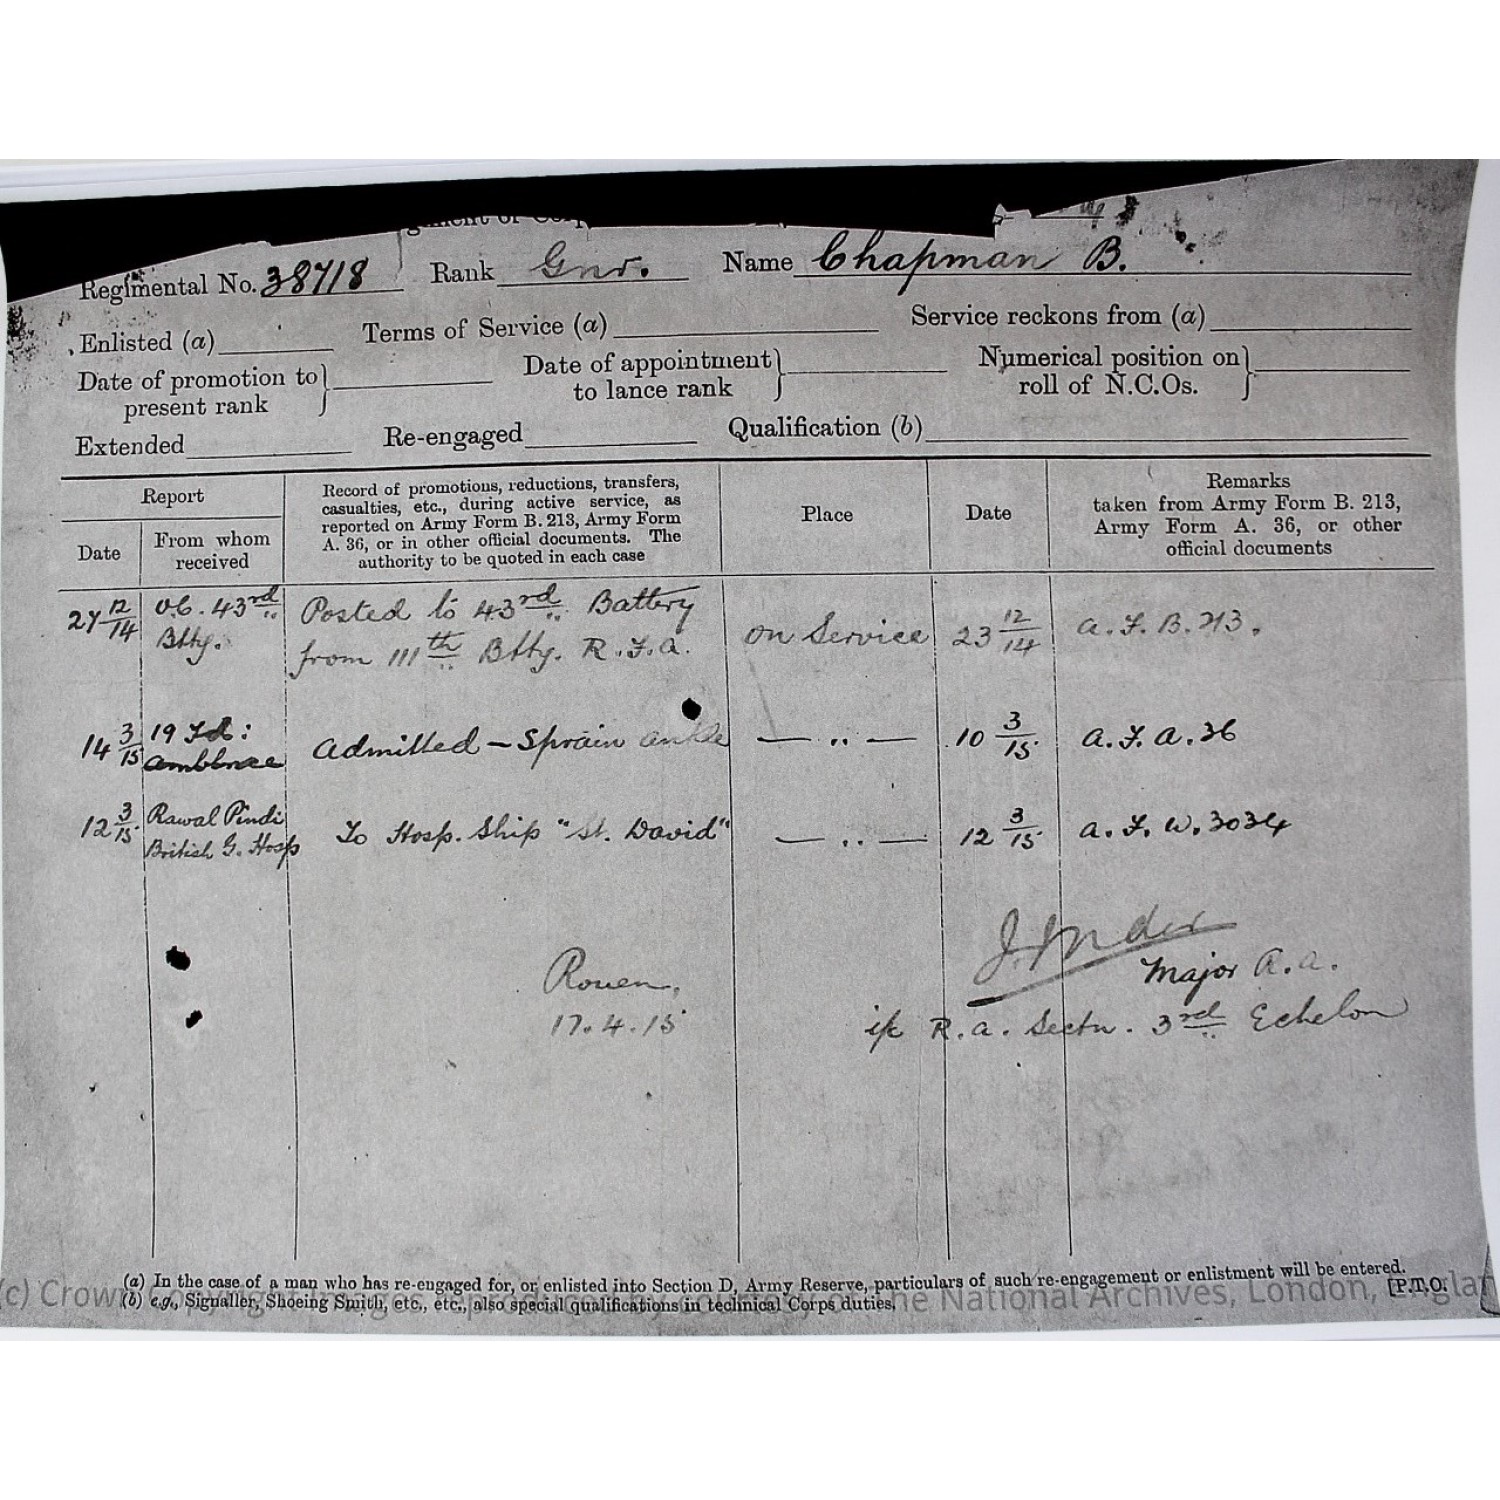 Regimental No. 38718 Rank Gnr. Name Chapman B.
Enlisted (a) Terms of Service (a) Service reckons from (a)
Date of promotion to present rank } Date of appointment to lance rank } Numerical position on roll of N.C.Os. }
Extended Re-engaged Qualification (b)
Report
Date
From whom
received
Record of promotions, reductions, transfers,
casualties, etc., during active service, as
reported on Army Form B. 213, Army Form
A. 36, or in other official documents. The
authority to be quoted in each case
Place
Date
Remarks
taken from Army Form B. 213,
Army Form A. 36, or other
official documents
27 12/14 O.C. 43rd Posted to 43rd Battery on Service 23 12/14 A.F.B. 213.
Btty. from 111th Btty. R.F.A.
14 3/15 19 Fd: Admitted – Sprain ankle — .. — 10 3/15 A.F.A. 36
Amblnce
12 3/15 Rawal Pindi To Hosp. Ship "St. David" — .. — 12 3/15 A.F.W. 3034
British G. Hosp
Rouen,
17.4.15
Major R.A.
i/c R.A. Sectn. 3rd Echelon
(a) In the case of a man who has re-engaged for, or enlisted into Section D, Army Reserve, particulars of such re-engagement or enlistment will be entered.
(b) e.g., Signaller, Shoeing Smith, etc., etc., also special qualifications in technical Corps duties. [P.T.O.
(c) Crown the National Archives, London,